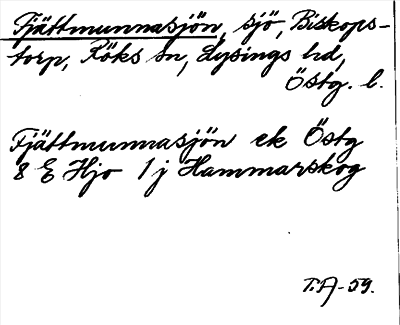 Fjättmunnasjön, sjö, Biskops-
torp, Röks sn, Lysings hd,
Östg. l.
Fjättmunnasjön ek Östg
8 E Hjo 1 j Hammarskog
T.A-59.